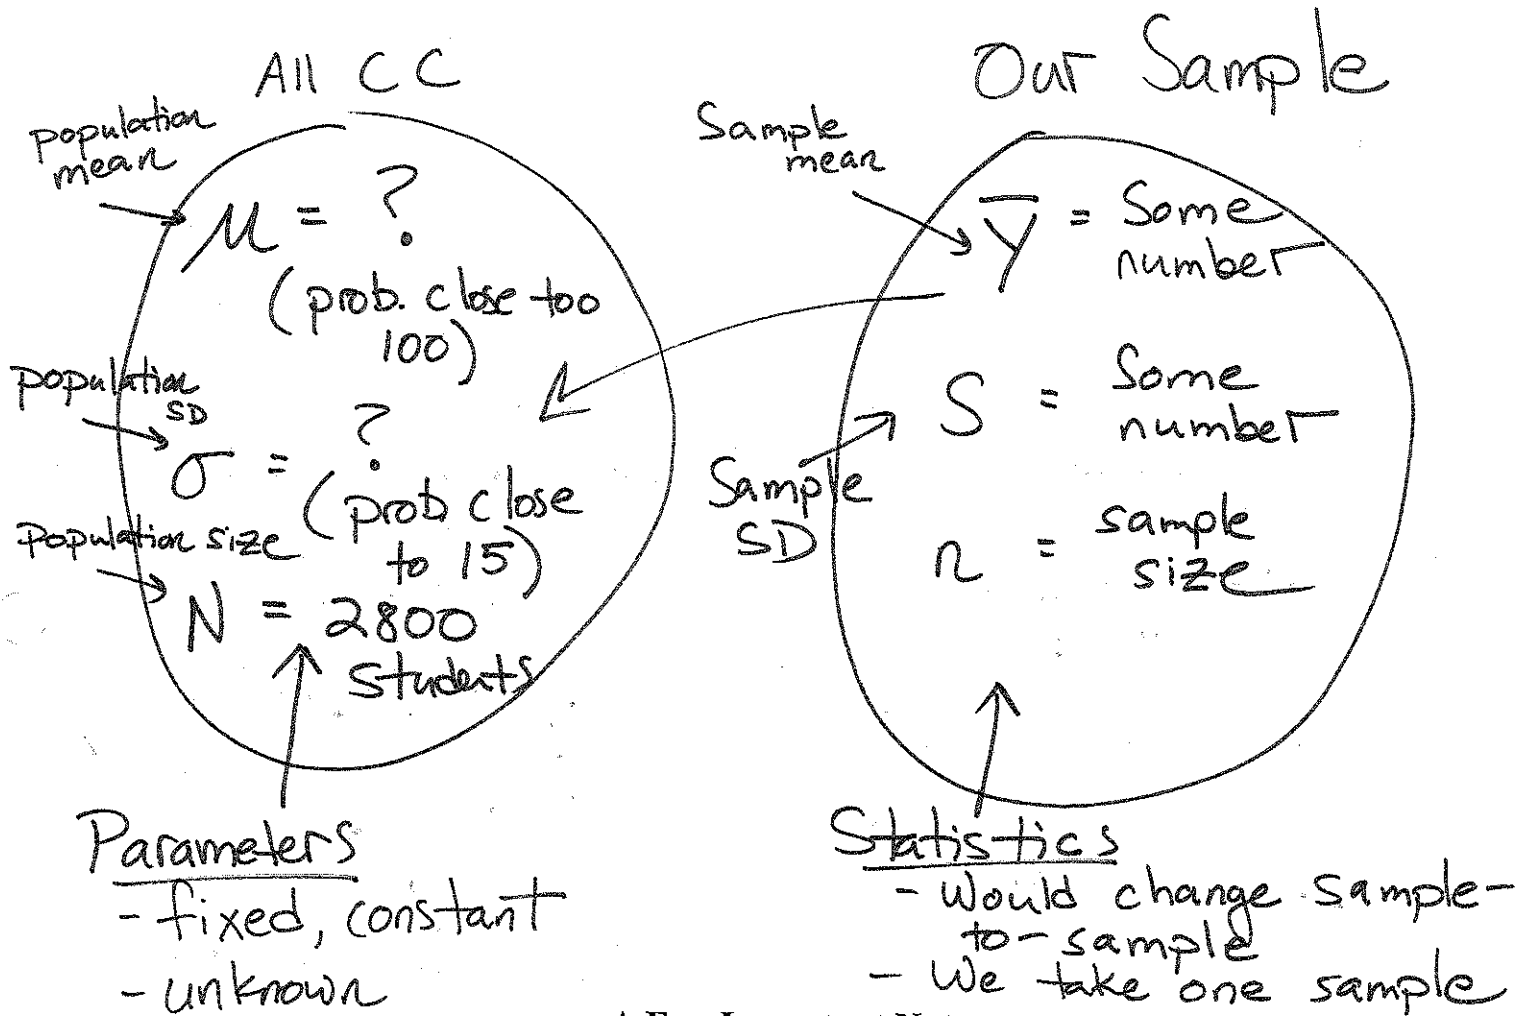 All CC
population
mean
μ = ?
(prob. close too
100)
population
SD
σ = ?
(prob close
to 15)
population size
N = 2800
students
Parameters
- fixed, constant
- unknown
Our Sample
Sample
mean
Y̅ = Some
number
S = Some
number
Sample
SD
n = sample
size
Statistics
- would change sample-
to-sample
- We take one sample